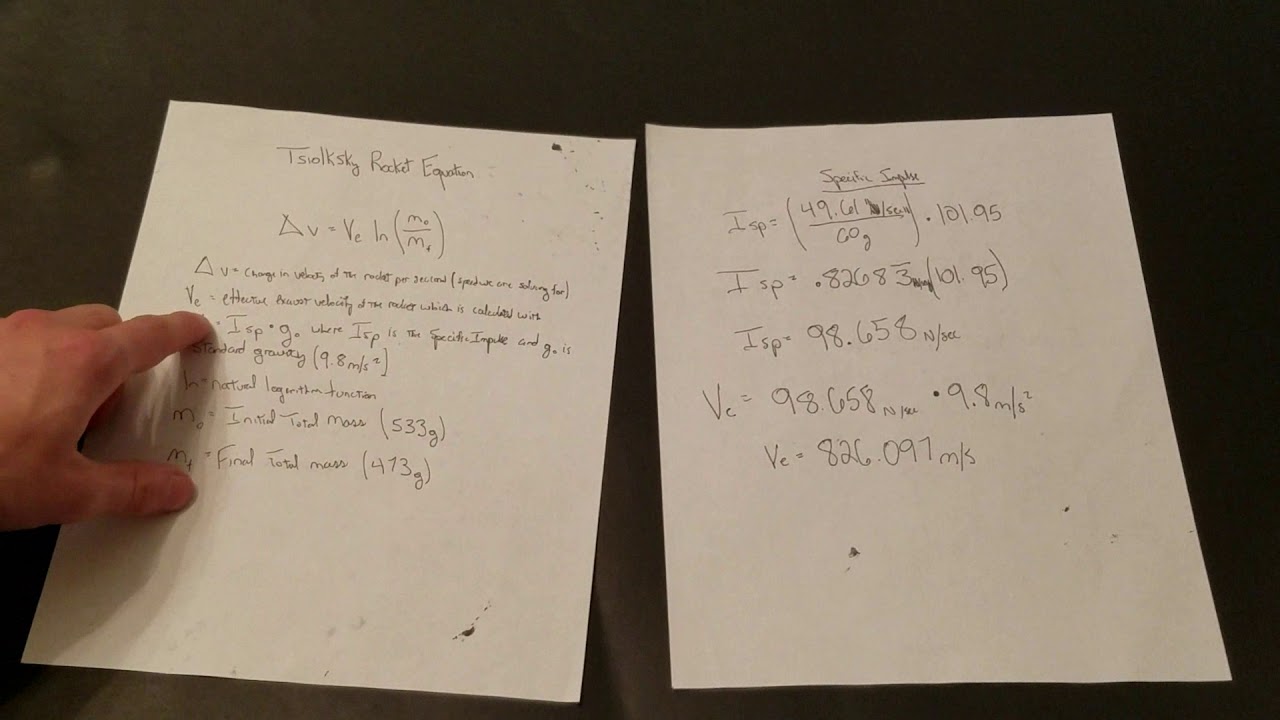 Tsiolksky Rocket Equation
Δv = Ve ln(m₀/mf)
Δv = change in velocity of the rocket per second (speed we are solving for)
Ve = effective exaust velocity of the rocket which is calculated with
· Isp · g₀ where Isp is the Specific Impulse and g₀ is
standard gravity (9.8 m/s²]
ln = natural logarithm function
m₀ = Initial Total mass (533g)
mf = Final Total mass (473g)
Specific Impulse
Isp = (49.61 N/sec / 60g) · 101.95
Isp = .82683 (101.95)
Isp = 98.658 N/sec
Ve = 98.658 N/sec · 9.8 m/s²
Ve = 826.097 m/s